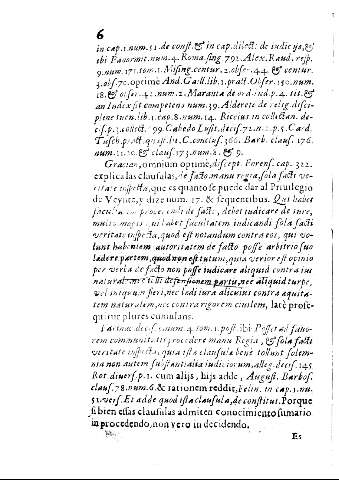 6
in cap. 1. num. 51. de const. & in cap. dilecti: de iudicijs, &
ibi Panormit. num. 4. Roma. sing. 792. Alex. Raud. resp.
9. num. 171. tom. 1. Mising. centur. 2. obser. 44. & centur.
3. obs. 70. optime And. Gaill. lib. 1. pract. Obser. 150. num.
18. & obser. 42. num. 2. Maranta de ord. iud. p. 4. tit. &
an Index sit competens num. 39. Alderete de relig. disci-
pline tuen. lib. 1. cap. 8. num. 14. Riccius in collectan. de-
cis. p. 3. collect. 599. Cabedo Lusit. decis. 72. n. 2. p. 5. Card.
Tusch. pract. quæst. lit. C. conclus. 366. Barb. claus. 176.
num. 21. 20. & claus. 173. num. 8. & 9.
Gratian, omnium optimè, discept. Forens. cap. 322.
explica las clausulas, de facto, manu regia, sola facti ve-
ritate inspecta, que es quanto se puede dar al Preuilegio
de Veyntẽ, y dize num. 17. & sequentibus. Qui habet
facultatem procedendi de facto, debet iudicare de iure,
multo magis, si habet facultatem iudicandi sola facti
veritate inspecta, quod est notandum contra eos, qui vo-
lunt habentem autoritatem de facto posse arbitrio suo
ladere partem, quod non est tutum, quia verior est opinio
per verba de facto non posse iudicare aliquid contra ius
naturale, nec tolli defensionem partis, nec aliquid turpe,
vel iniquum fieri, nec ladi iura alicuius contra aquita-
tem naturalem, nec contra rigorem ciuilem, latè profe-
quitur plures cumulans.
Farinac. decis. 5. num. 4. tom. 1. post. ibi: Posset ad fano-
rem communitatis procedere manu Regia, & sola facti
veritate inspecta, quia ista clausula bene tollunt solem-
nia non autem substantialia iudiciorum, alleg. decis. 145
Rot. diuers. p. 1. cum alijs, hijs adde, August. Barbos.
claus. 78. num. 6. & rationem reddit, Felin. in cap. 1. nu.
51. vers. Et adde quod ista clausula, de constitut. Porque
si bien essas clausulas admiten conocimiento sumario
in procedendo, non vero in decidendo.
Es